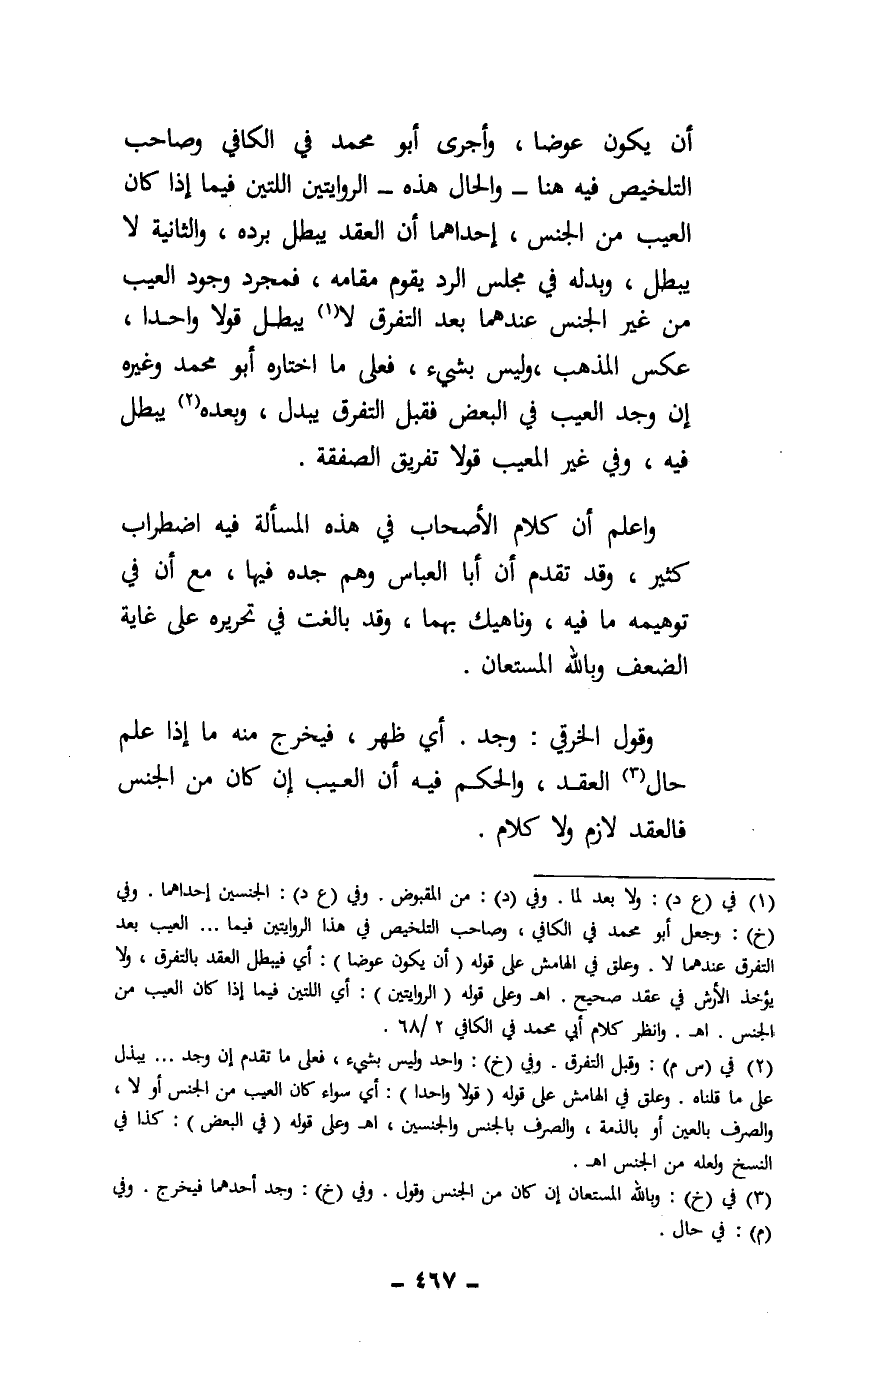 أن يكون عوضا ، وأجرى أبو محمد في الكافي وصاحب
التلخيص فيه هنا – والحال هذه – الروايتين اللتين فيما إذا كان
العيب من الجنس ، إحداهما أن العقد يبطل برده ، والثانية لا
يبطل ، وبدله في مجلس الرد يقوم مقامه ، فمجرد وجود العيب
من غير الجنس عندهما بعد التفرق لا(١) يبطل قولا واحدا ،
عكس المذهب ،وليس بشيء ، فعلى ما اختاره أبو محمد وغيره
إن وجد العيب في البعض فقبل التفرق يبدل ، وبعده(٢) يبطل
فيه ، وفي غير المعيب قولا تفريق الصفقة .
واعلم أن كلام الأصحاب في هذه المسألة فيه اضطراب
كثير ، وقد تقدم أن أبا العباس وهم جده فيها ، مع أن في
توهيمه ما فيه ، وناهيك بهما ، وقد بالغت في تحريره على غاية
الضعف وبالله المستعان .
وقول الخرقي : وجد . أي ظهر ، فيخرج منه ما إذا علم
حال(٣) العقد ، والحكم فيه أن العيب إن كان من الجنس
فالعقد لازم ولا كلام .
(١) في (ع د) : ولا بعد لما . وفي (د) : من المقبوض . وفي (ع د) : الجنسين إحداهما . وفي
(خ) : وجعل أبو محمد في الكافي ، وصاحب التلخيص في هذا الروايتين فيما ... العيب بعد
التفرق عندهما لا . وعلق في الهامش على قوله ( أن يكون عوضا ) : أي فيبطل العقد بالتفرق ، ولا
يؤخذ الأرش في عقد صحيح . اهـ وعلى قوله ( الروايتين ) : أي اللتين فيما إذا كان العيب من
الجنس . اهـ . وانظر كلام أبي محمد في الكافي ٢ /٦٨ .
(٢) في (س م) : وقبل التفرق . وفي (خ) : واحد وليس بشيء ، فعلى ما تقدم إن وجد ... يبذل
على ما قلناه . وعلق في الهامش على قوله ( قولا واحدا ) : أي سواء كان العيب من الجنس أو لا ،
والصرف بالعين أو بالذمة ، والصرف بالجنس والجنسين ، اهـ وعلى قوله ( في البعض ) : كذا في
النسخ ولعله من الجنس اهـ .
(٣) في (خ) : وبالله المستعان إن كان من الجنس وقول . وفي (خ) : وجد أحدهما فيخرج . وفي
(م) : في حال .
– ٤٦٧ –